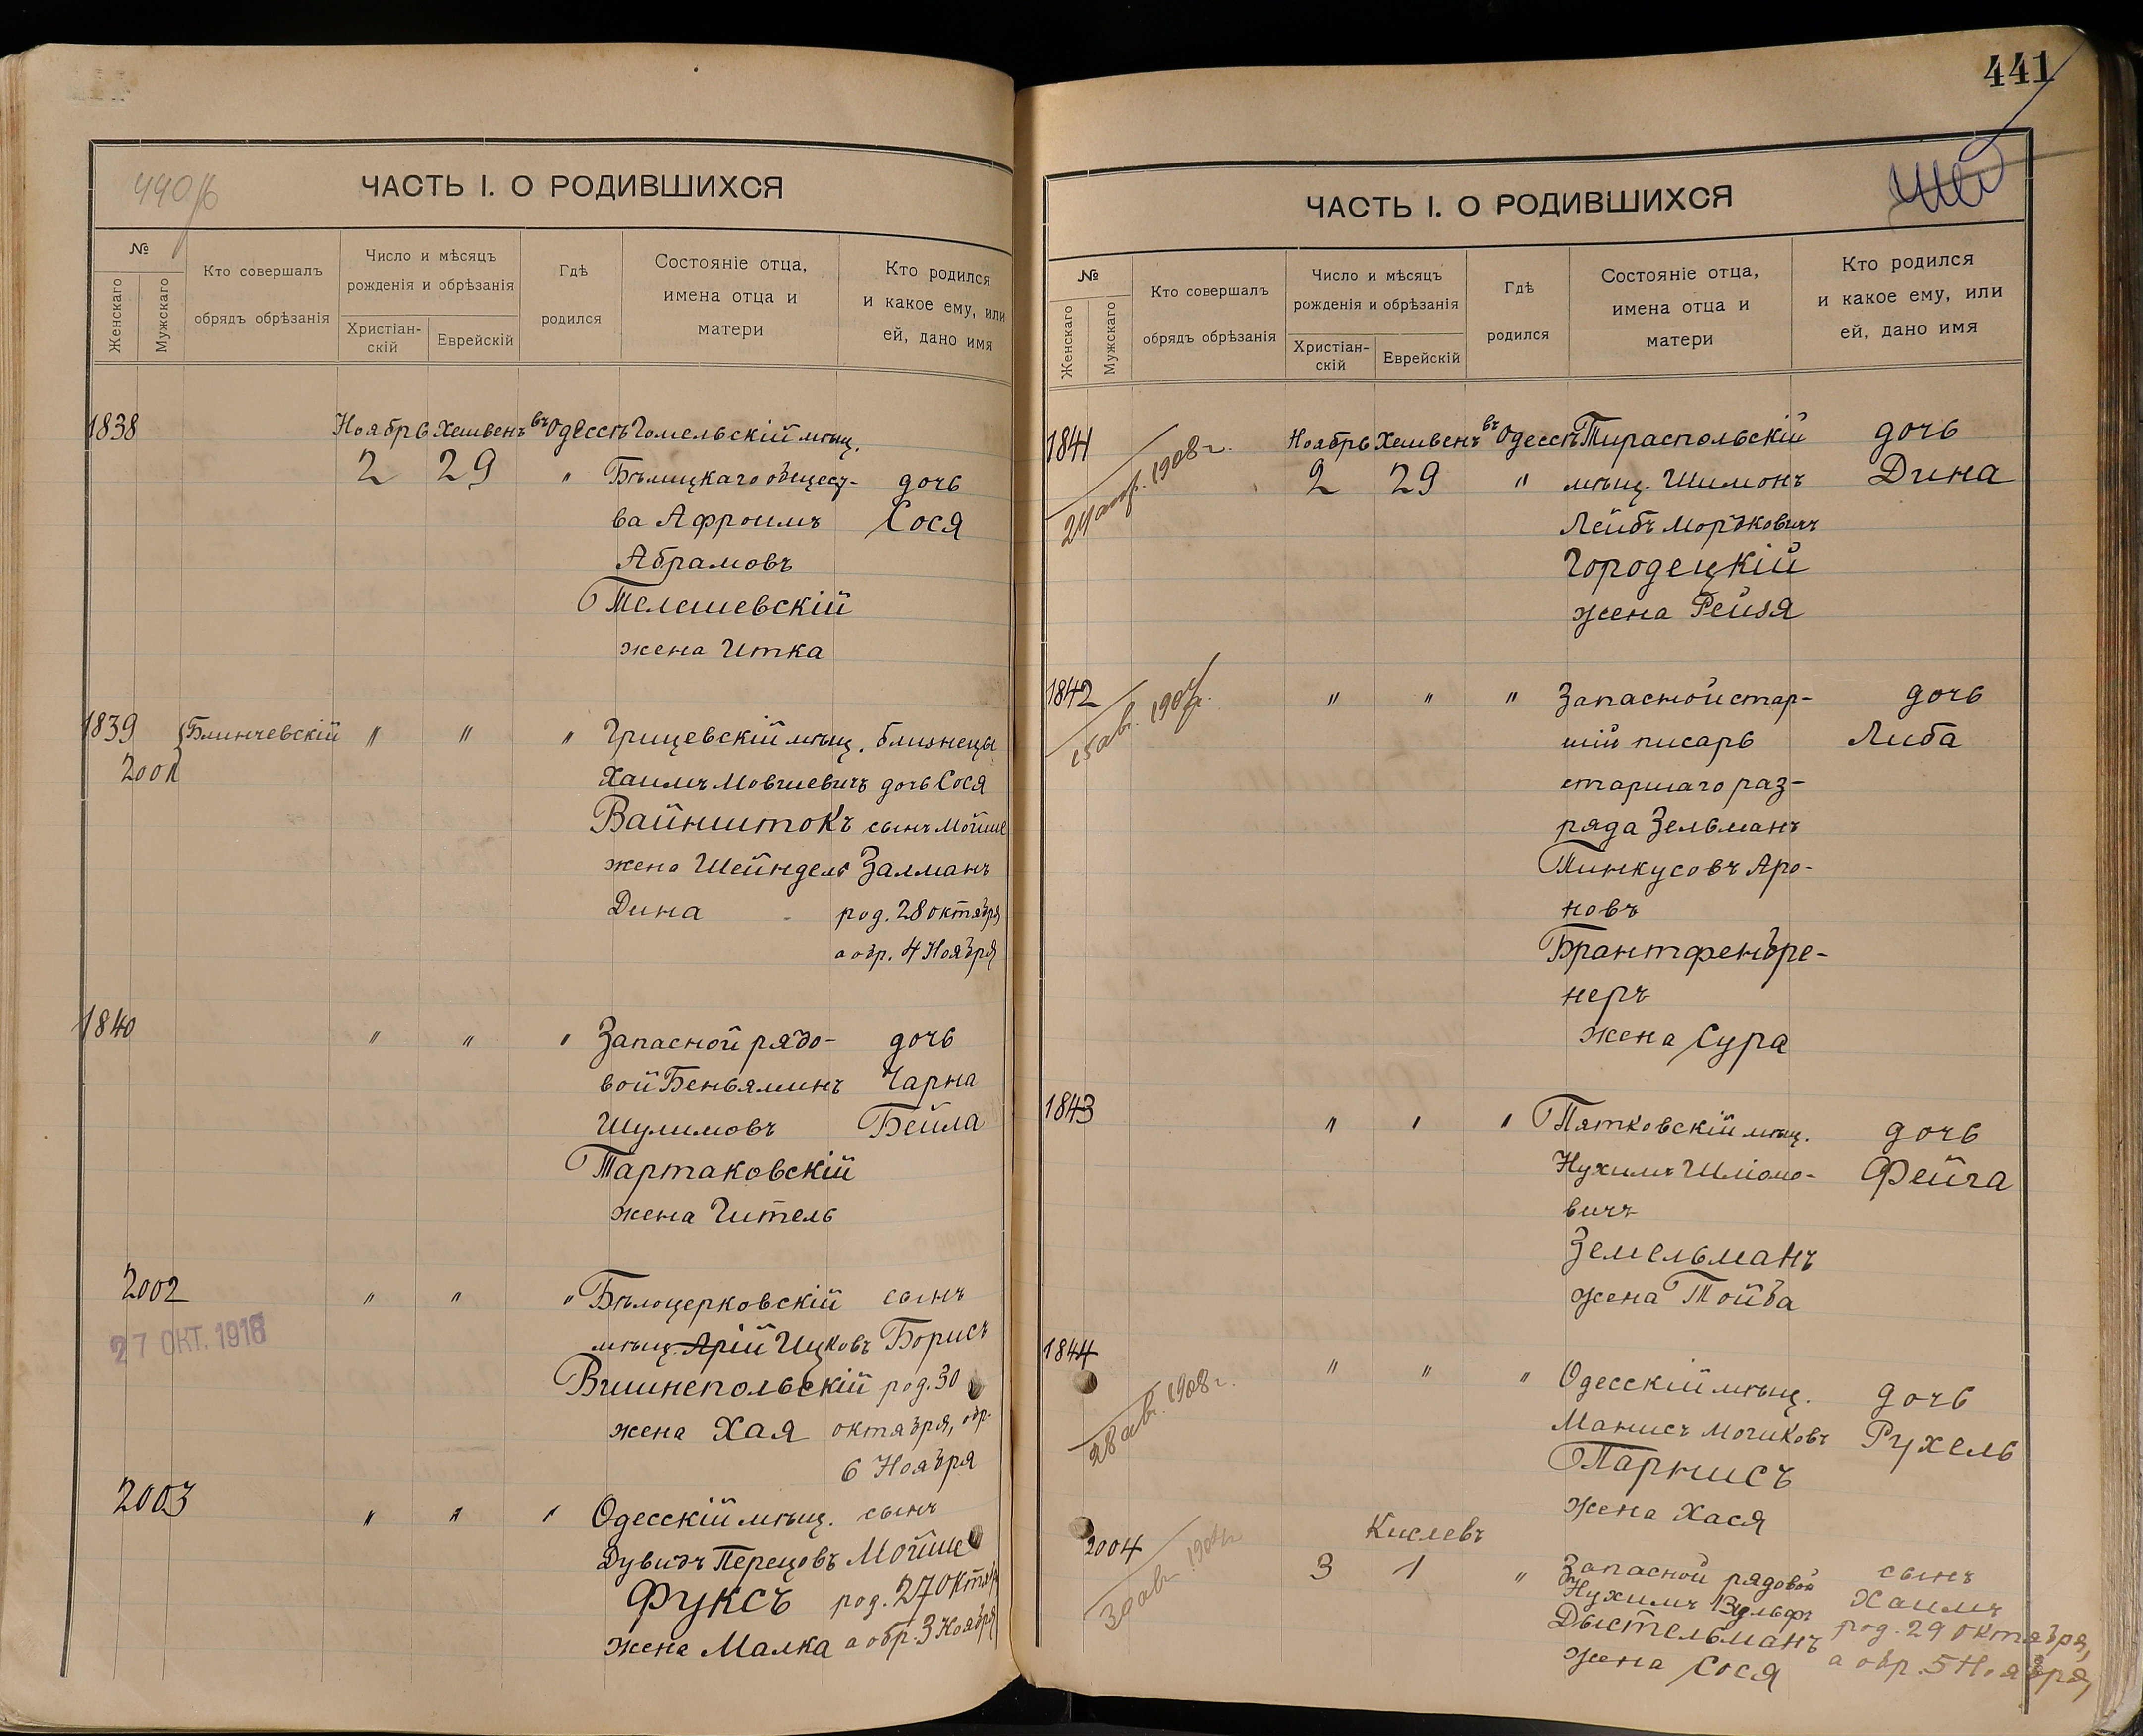 440/б
ЧАСТЬ I. О РОДИВШИХСЯ
№
Женскаго
Мужскаго
Кто совершалъ
обрядъ обрѣзанія
Число и мѣсяцъ
рожденія и обрѣзанія
Христіан-
скій
Еврейскій
Гдѣ
родился
Состояніе отца,
имена отца и
матери
Кто родился
и какое ему, или
ей, дано имя
1838
Ноябрь Хешвенъ въ Одессѣ Гомельскій мѣщ.
2 29 " Бѣлицкаго общест- дочь
ва Афроимъ Сося
Абрамовъ
Телешевскій
жена Итка
1839 Блинчевскій " " " Грицевскій мѣщ. близнецы
2001
Хаимъ Мовшевичъ дочь Сося
Вайнштокъ сынъ Мойше
жена Шейндель Залманъ
Дина род. 28 октября
а обр. 4 Ноября
1840 " " " Запасной рядо- дочь
вой Беньяминъ Чарна
Шулимовъ Бейла
Тартаковскій
жена Гитель
2002 " " " Бѣлоцерковскій сынъ
27 ОКТ. 1916
мѣщ. Арій Ицковъ Борисъ
Вишнепольскій род. 30
жена Хая октября, обр.
6 Ноября
2003 " " " Одесскій мѣщ. сынъ
Дувидъ Перецовъ Мойше
Фуксъ род. 27 октяб
жена Малка а обр. 3 Ноября
441
ЧАСТЬ I. О РОДИВШИХСЯ
№
Женскаго
Мужскаго
Кто совершалъ
обрядъ обрѣзанія
Число и мѣсяцъ
рожденія и обрѣзанія
Христіан-
скій
Еврейскій
Гдѣ
родился
Состояніе отца,
имена отца и
матери
Кто родился
и какое ему, или
ей, дано имя
1841 Ноябрь Хешвенъ въ Одессѣ Тираспольскій дочь
1908 г.
2 29 " мѣщ. Шимонъ Дина
Лейбъ Морѣковичъ
Городецкій
жена Рейзя
1842 " " " Запасной стар- дочь
15 авг. 1907 г.
шій писарь Либа
старшаго раз-
ряда Зельманъ
Пинкусовъ Аро-
новъ
Брантфенбре-
неръ
жена Сура
1843 " " " Пятковскій мѣщ. дочь
Нухимъ Шліомо- Фейга
вичъ
Земельманъ
жена Тойба
1844 " " " Одесскій мѣщ. дочь
28 авг. 1908 г.
Манисъ Мошковъ Рухель
Парнисъ
жена Хася
Кислевъ
2004 3 1 " Запасной рядовой сынъ
30 авг.
Нухимъ Вульфъ Хаимъ
Дыстельманъ род. 29 октября,
жена Сося а обр. 5 Ноября,